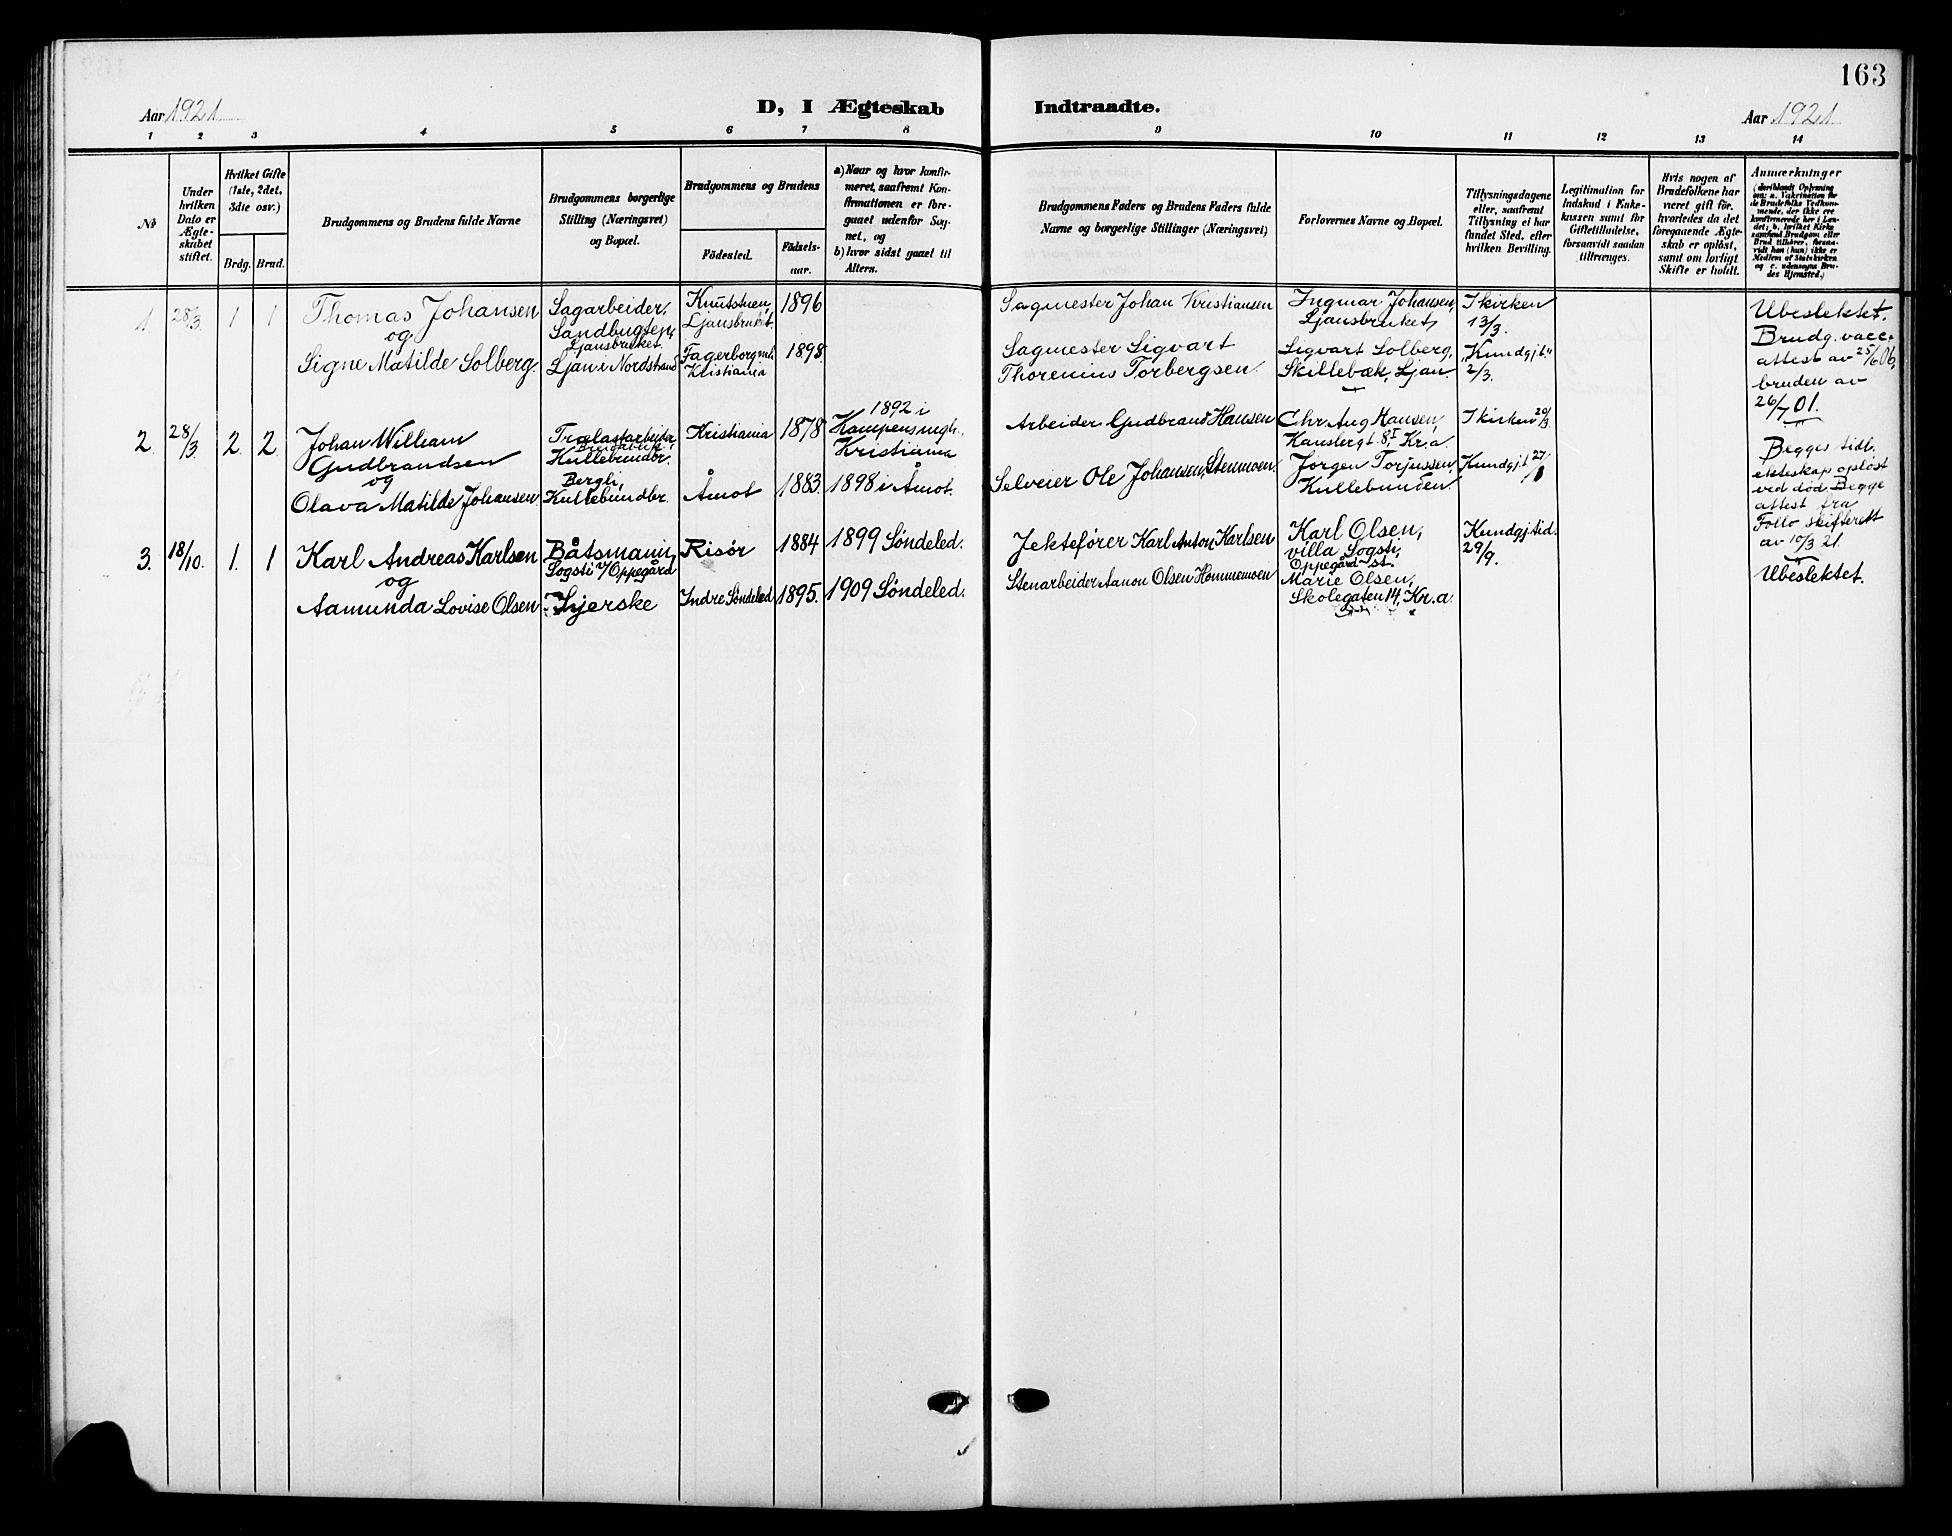 163
Aar 1921
D, I Ægteskab Indtraadte.
Aar 1921
1 2 3 4 5 6 7 8 9 10 11 12 13 14
№
Under
hvilken
Dato er
Ægte-
skabet
stiftet.
Hvilket Gifte
(1ste, 2det,
3die osv.)
Brdg.
Brud.
Brudgommens og Brudens fulde Navne
Brudgommens borgerlige
Stilling (Næringsvei)
og Bopæl.
Brudgommens og Brudens
Födested.
Födsels-
aar.
a) Naar og hvor konfir-
meret, saafremt Kon-
firmationen er fore-
gaaet udenfor Sog-
net, og
b) hvor sidst gaaet til
Alters.
Brudgommens Faders og Brudens Faders fulde
Navne og borgerlige Stillinger (Næringsvei)
Forlovernes Navne og Bopæl.
Tillysningsdagene
eller, saafremt
Tillysning ei har
fundet Sted, efter
hvilken Bevilling.
Legitimation for
Indskud i Enke-
kassen samt for
Giftetilladelse,
forsaavidt saadan
tiltrænges.
Hvis nogen af
Brudefolkene har
været gift för,
hvorledes da det
foregaaende Ægte-
skab er oplöst,
samt om lovligt
Skifte er holdt.
Anmærkninger
(deriblandt Oplysning
om: a. Vakcination for
de Brudefolks Vedkom-
mende, der ikke ere
konfirmerede her i Lan-
det; b. hvilket Kirke-
samfund Brudgom eller
Brud tilhører, forsaa-
vidt han (hun) ikke er
Medlem af Statskirken
og c. udensogns Bru-
des Hjemsted.)
1 28/3. 1 1
Thomas Johansen
og
Signe Matilde Solberg.
Sagarbeider,
Sandbugten,
Ljansbruket.
Ljan i Nordstrand
Knutstuen,
Ljansbruket.
1896
Fagerborg mh.
Kristiania
1898
Sagmester Johan Kristiansen
Sagmester Sigvart
Thorenius Torbergsen.
Ingmar Johansen,
Ljansbruket,
Sigvart Solberg,
Skillebæk, Ljan.
I kirken
13/3.
"Kundgj.t"
2/3.
Ubeslektet.
Brudg. vacc.
attest av 25/6 06,
bruden av
26/7 01.
2. 28/3 2. 2.
Johan William
Gudbrandsen
og
Olava Matilde Johansen
Trælastarbeider
Kullebunden.
Bergli,
Kullebundbr.
Kristiania 1878
Åmot 1883
1892 i
Kampens mgh.,
Kristiania
1898 i Åmot.
Arbeider Gudbrand Hansen
Selveier Ole Johansen, Stenmoen.
Chr. Aug Hansen,
Hauslergt. 8, Kr.a
Jørgen Torjussen,
Kullebunden.
I kirken 20/3.
Kundgj.t 27/
Begges tidl.
ekteskap opløst
ved død. Begge
attest fra
Follo skifterett
av 10/3 21.
3. 18/10. 1. 1
Karl Andreas Karlsen
og
Aamunda Lovise Olsen
Båtsmann,
Sogsti v/ Oppegård
Syerske
Risør 1884 1899 Søndeled.
Indre Søndeled 1895. 1909 Søndeled.
Jektefører Karl Anton Karlsen
Stenarbeider Aanon Olsen Hommemoen
Karl Olsen,
villa Sogsti,
Oppegård st.
Marie Olsen,
Skolegaten 14, Kr.a.
Kundgj. tid.
29/9.
Ubeslektet.